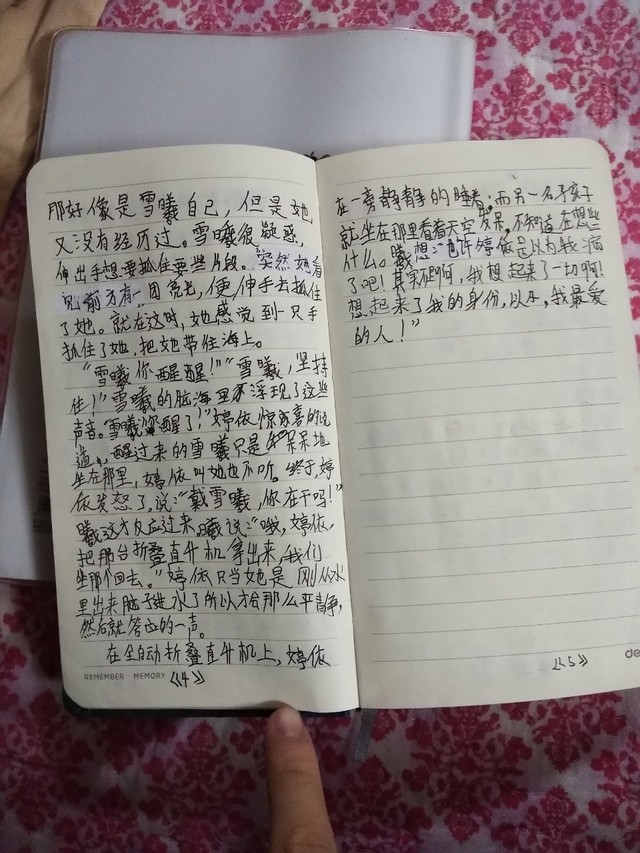 那好像是雪曦自己，但是她
又没有经历过。雪曦很疑惑，
伸出手想要抓住要些片段。突然她看
见前方有一团亮光，便伸手去抓住
了她。就在这时，她感觉到一只手
抓住了她，把她带住海上。
“雪曦你醒醒！”“雪曦，坚持
住！”雪曦的脑海里浮现了这些
声音。“雪曦你醒了！”婷依惊喜的说
道。醒过来的雪曦只是呆呆地
坐在那里，婷依叫她也不听。终于，婷
依发怒了，说：“戴雪曦，你在干吗！”
曦这才反应过来，曦说：“哦，婷依，
把那台折叠直升机拿出来，我们
坐那个回去。”婷依只当她是刚从水
里出来脑子进水了所以才会那么平静，
然后就答应的一声。
在全自动折叠直升机上，婷依
REMEMBER · MEMORY 《4》
在一旁静静的睡着；而另一名孩子
就坐在那里看着天空发呆，不知道在想些
什么。曦想：“也许婷依是以为我
了吧！其实不啊，我想起来了一切啊！
想起来了我的身份，以及，我最爱
的人！”
《5》
de